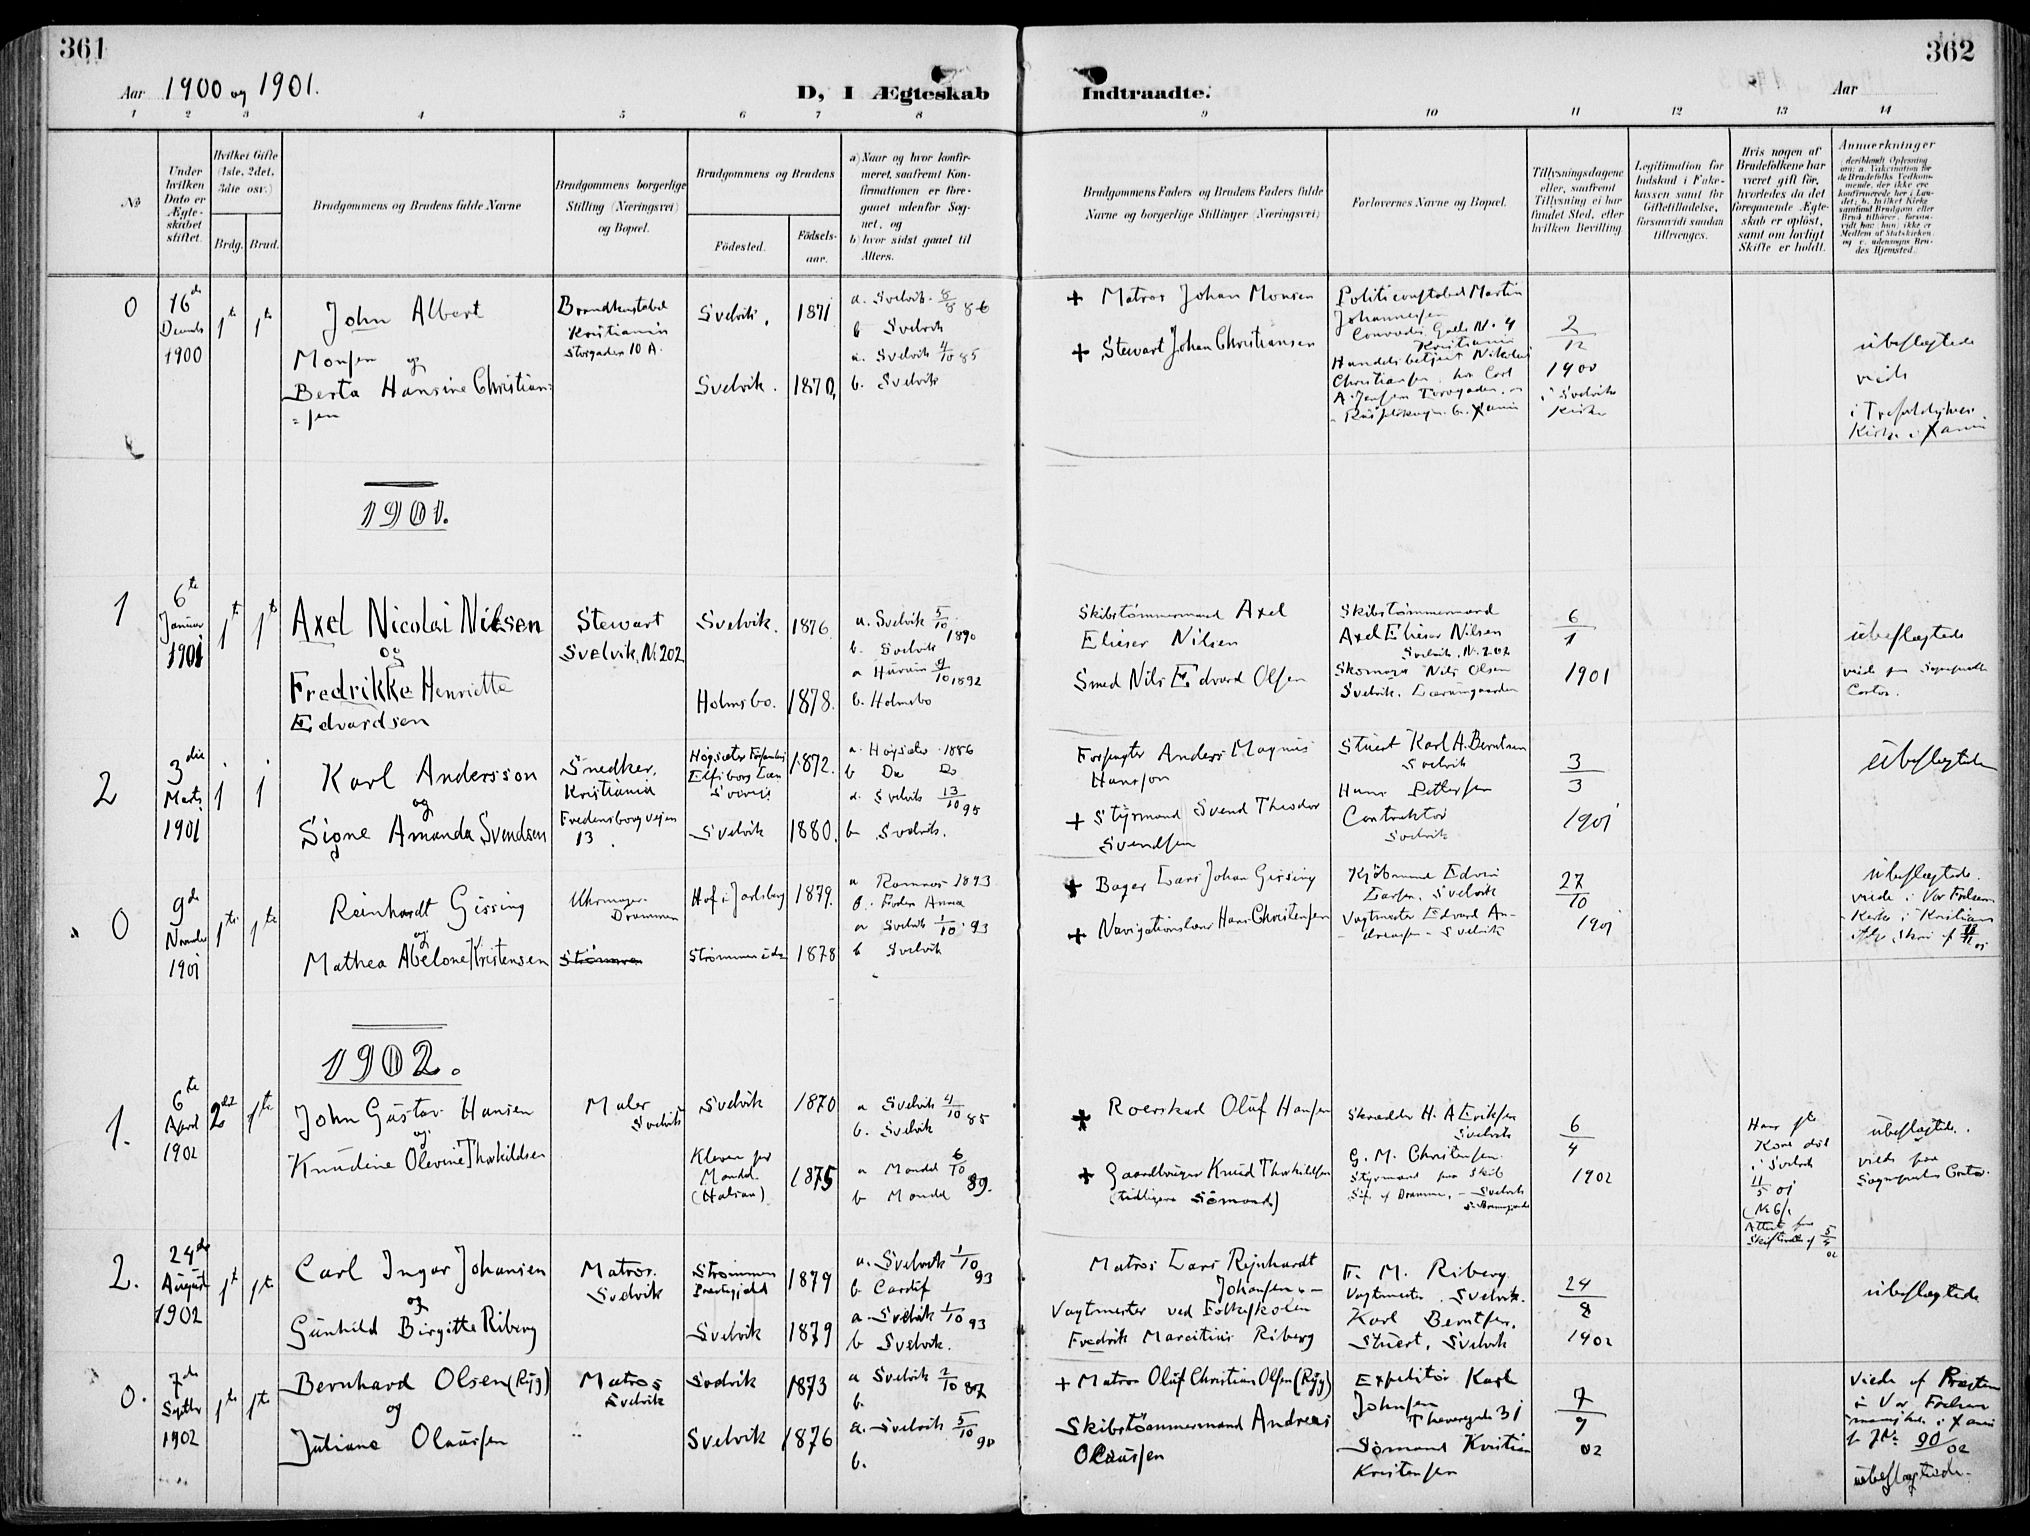 361
362
Aar 1900 og 1901.
D, I Ægteskab Indtraadte.
Aar
1 2 3 4 5 6 7 8 9 10 11 12 13 14
No
Under hvilken Dato er Ægteskabet stiftet.
Hvilket Gifte (1ste, 2det, 3die osv.)
Brdg. Brud.
Brudgommens og Brudens fulde Navne
Brudgommens borgerlige Stilling (Næringsvei) og Bopæl.
Brudgommens og Brudens
Fødested.
Fødselsaar.
a) Naar og hvor konfirmeret, saafremt Konfirmationen er foregaaet udenfor Sognet, og
b) hvor sidst gaaet til Alters.
Brudgommens Faders og Brudens Faders fulde Navne og borgerlige Stillinger (Næringsvei)
Forlovernes Navne og Bopæl.
Tillysningsdagene eller, saafremt Tillysning ei har fundet Sted, efter hvilken Bevilling.
Legitimation for Indskud i Enkekassen samt for Giftetilladelse, forsaavidt saadan tiltrænges.
Hvis nogen af Brudefolkene har været gift før, hvorledes da det foregaaende Ægteskab er opløst, samt om lovligt Skifte er holdt.
Anmerkninger
0
16de
Decemb
1900
1te 1te
John Albert
Monsen og
Berta Hansine Christian=
=sen
Brandkonstabel
Kristiania
Storgaden 10 A.
Svelvik. 1871
Svelvik. 1870.
a. Svelvik 8/8 86
b Svelvik
a. Svelvik 4/10 85
b. Svelvik
+ Matros Johan Monsen
+ Stewart Johan Christiansen
Politiconstabel Martin
Johannessen
Kristiania
Handelsbetjent Nikolai
Christiansen
2/12
1900
i Svelvik
Kirke
ubeslægtede
viede
i Trefoldigheds
Kirke i Xania
1901.
1
6te
Januar
1901
1te 1te
Axel Nicolai Nilsen
og
Fredrikke Henriette
Edvardsen
Stewart
Svelvik, N. 202
Svelvik. 1876
Holmsbo. 1878.
a. Svelvik 5/10 1890
b. Svelvik
a Hurum 9/10 1892
b. Holmsbo
Skibstømmermand Axel
Elieser Nilsen
Smed Nils Edvard Olsen
Skibstømmermand
Axel Elieser Nilsen
Svelvik, N. 202
Skomager Nils Olsen
Svelvik.
6/1
1901
ubeslægtede
viede paa Sognepræstens
Contor.
2
3die
Marts
1901
1 1
Karl Andersson
og
Signe Amanda Svendsen
Snedker,
Kristiania
Fredensborgvejen
13.
Högsäter Församling
Elfsborg Län
Sverige
1872.
Svelvik 1880.
a. Högsäter 1886
b Do Do
a. Svelvik 13/10 95
b. Svelvik.
Forpagter Anders Magnus
Hansson
+ Styrmand Svend Theodor
Svendsen
Stuert Karl A. Berntsen
Svelvik
Hans Pettersen
Contraktør
Svelvik
3/3
1901
Ubeslægtede
0
9de
Novembr
1901
1te 1te
Reinhardt Gissing
og
Mathea Abelone Kristensen
Uhrmager
Drammen
Strømmen
Hof i Jarlsberg 1879.
1878
a Ramnes 1893
a Svelvik 1/10 93
b Svelvik
+ Bager Lars Johan Gissing
+ Navigationslærer Hans Christensen
Kjøbmand Edvin
Larsen, Svelvik
Vagtmester Edvard An-
dreasen - Svelvik
27/10
1901
ubeslægtede.
viede i Vor Frelsers
Kirke i Kristiania
1902.
1.
6te
April
1902
2det 1te
John Gustav Hansen
og
Knudine Olevine Thorkildsen
Maler
Svelvik
Svelvik 1870
Kleven per
Mandal
(Halsaa)
1875
a Svelvik 4/10 85
b. Svelvik
a Mandal 6/10 89.
b Mandal
+ Roerskarl Oluf Hansen
+ Gaardbruger Knud Thorkildsen
(tidligere Sømand)
Skrædder H. A Eriksen
Svelvik
G. M. Christensen.
Styrmand paa Skib
6/4
1902
Hans før
Kone død
i Svelvik
11/5 01
(No 6).
Attest fra
Skifteretten af 5/4 02
ubeslægtede.
viede paa
Sognepræstens Contor.
2.
24de
August
1902
1te 1te
Carl Ingvar Johansen
og
Gunhild Birgitte Riberg
Matros.
Svelvik
Strømmen
Præstegjeld
1879
Svelvik 1879
a. Svelvik 1/10 93
b Cardif
a. Svelvik 1/10 93
b Svelvik.
Matros Lars Rejnhardt
Johansen. -
Vagtmester ved Folkeskolen
Fredrik Marcitius Riberg
F. M. Riberg
Vagtmester. Svelvik.
Karl Berntsen,
Stuert, Svelvik
24/8
1902
ubeslægtede
0.
7de
Septbr
1902
1te 1te
Bernhard Olsen (Ryg)
og
Juliane Olaussen
Matros
Svelvik
Svelvik 1873
Svelvik 1876
a Svelvik 2/10 87
b.
a. Svelvik 5/10 90
b.
+ Matros Oluf Christian Olsen (Ryg)
Skibstømmermand Andreas
Olaussen
Expeditør Karl
Johnsen
Sømand Kristian
Kristensen
7/9
02
Viede af Præsten
i Vor Frelser
ubeslægtede.